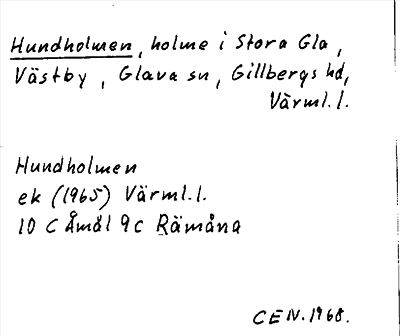 Hundholmen, holme i Stora Gla,
Västby, Glava sn, Gillbergs hd,
Värml.l.
Hundholmen
ek (1965) Värml.l.
10 C Åmål 9c Rämåna
CEN. 1968.